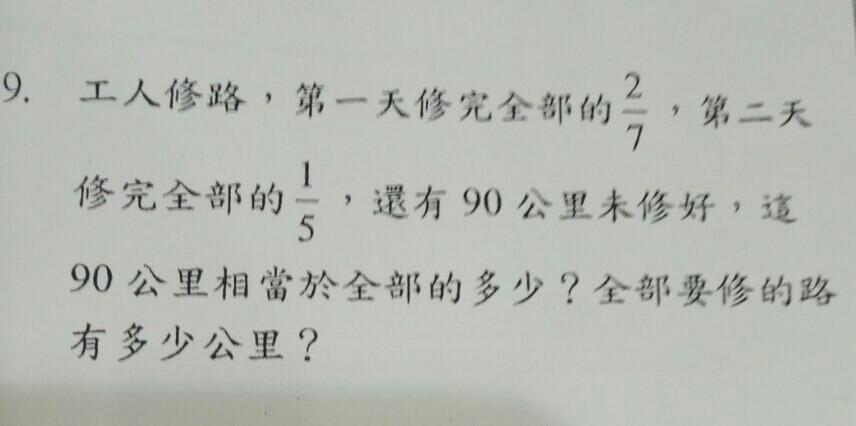 9. 工人修路，第一天修完全部的2/7，第二天
修完全部的1/5，還有90公里未修好，這
90公里相當於全部的多少？全部要修的路
有多少公里？